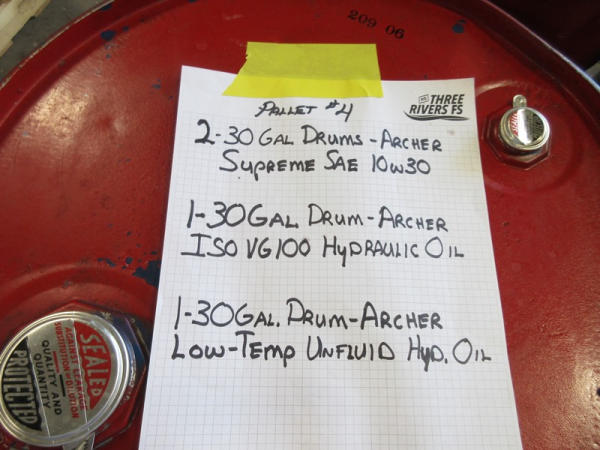 209 06
PALLET #4
THREE
RIVERS FS
2-30 GAL DRUMS-ARCHER
SUPREME SAE 10W30
1-30 GAL DRUM-ARCHER
ISO VG100 HYDRAULIC OIL
1-30 GAL. DRUM-ARCHER
LOW-TEMP UNFLUID HYD. OIL
SEALED
AGAINST LEAKAGE
SUBSTITUTION POLLUTION
QUALITY AND
QUANTITY
PROTECTED